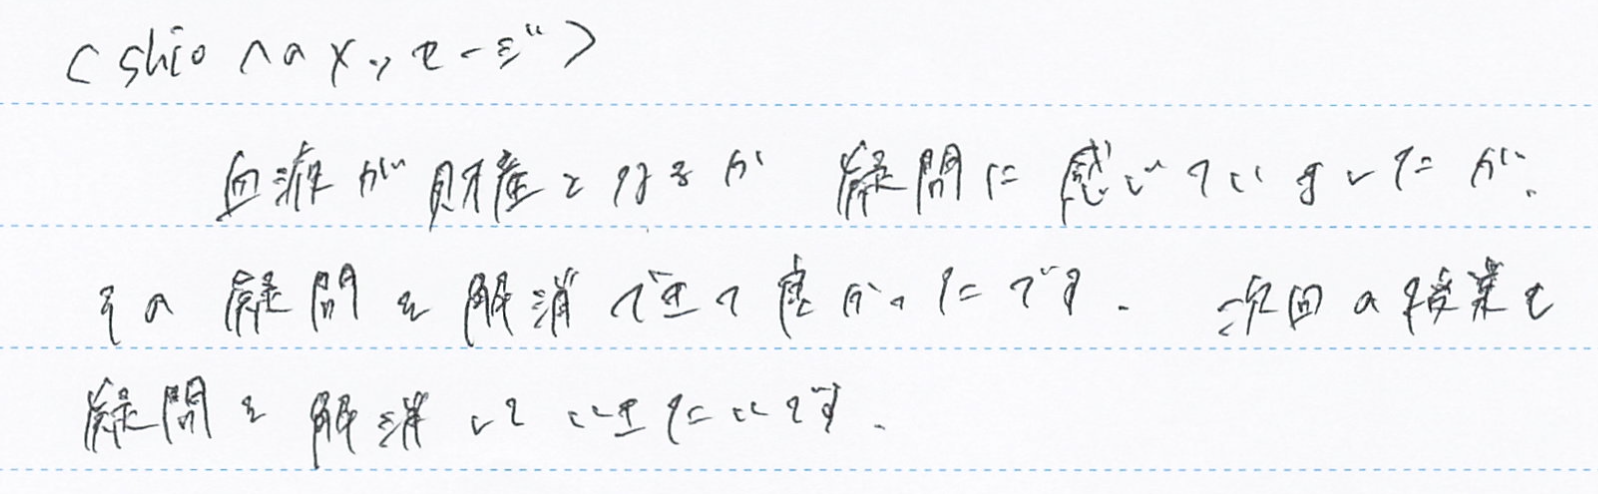 <shioへのメッセージ>
血液が財産となるか 疑問に感じていましたが、
その疑問を解消できて良かったです。 次回の授業も
疑問を解消していきたいです。